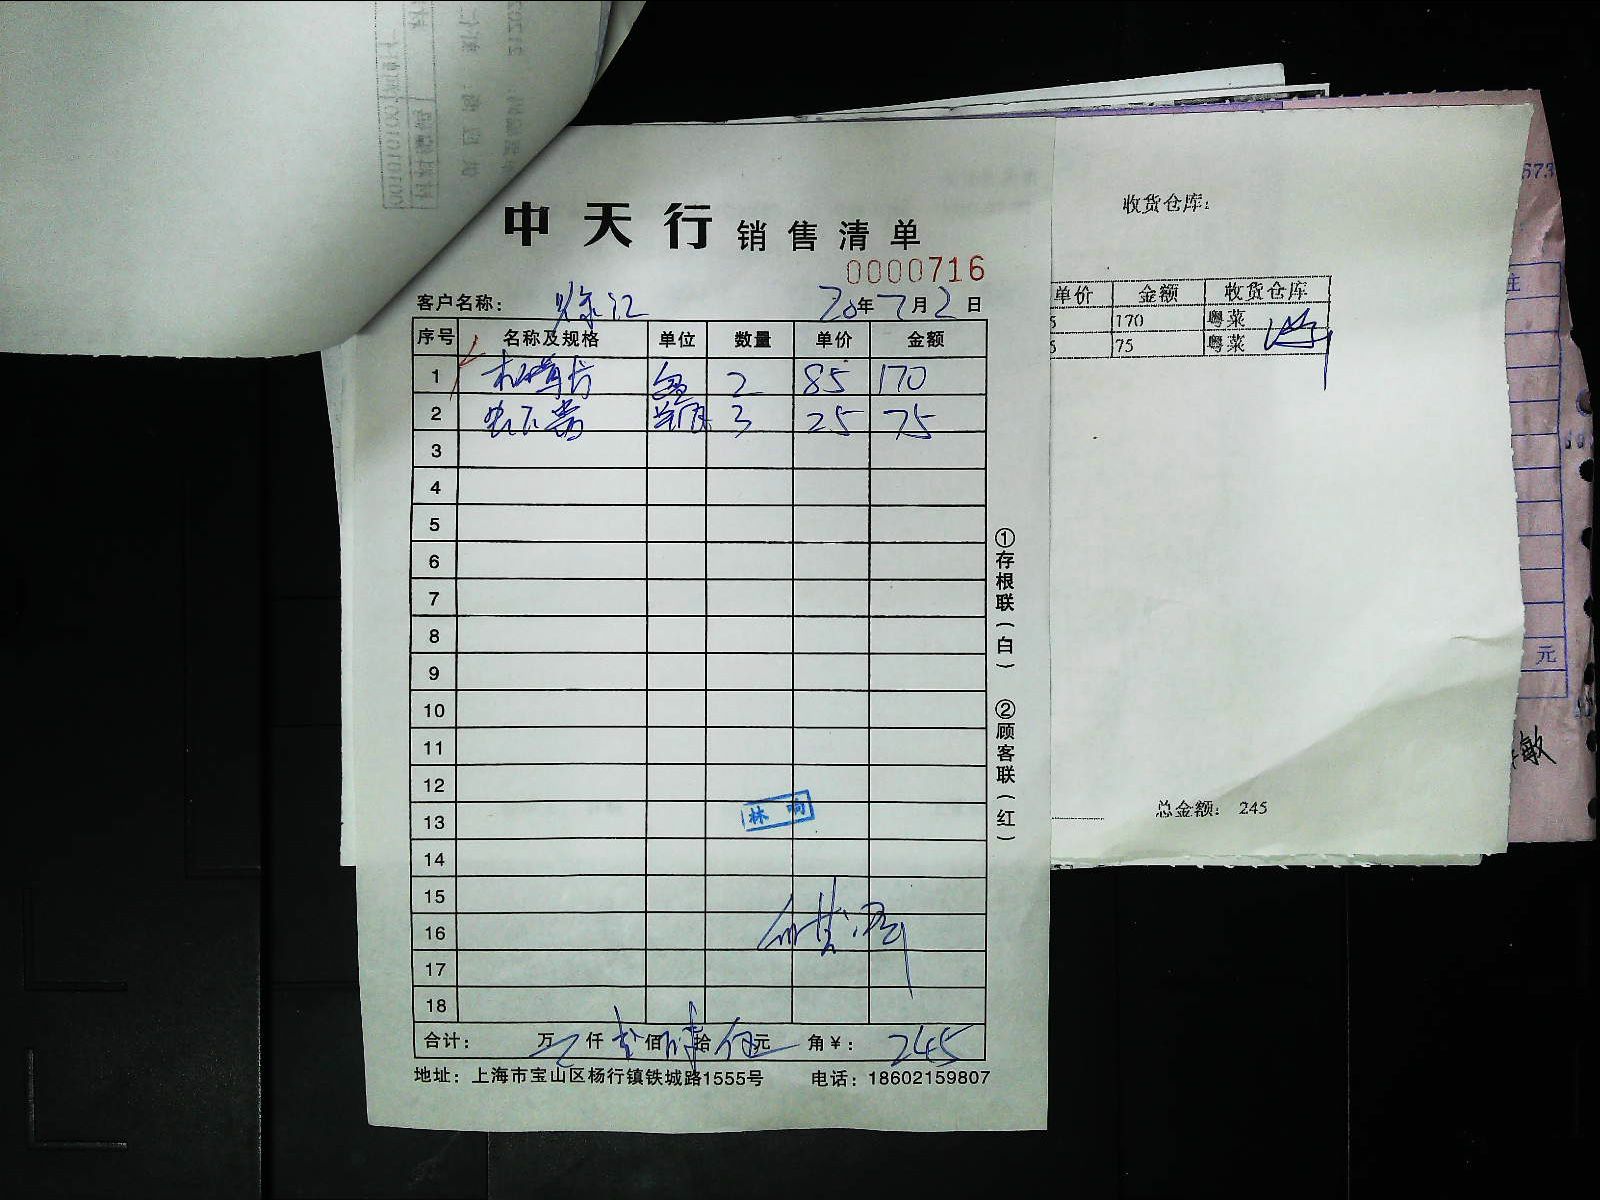 中天行 销售清单
0000716
客户名称： 徐汇 20年7月2日
序号 名称及规格 单位 数量 单价 金额
1 盒 2 85 170
2 3 25 75
3
4
5
6
7
8
9
10
11
12
13 林响
14
15
16
17
18
合计： 万 仟 佰 拾 元 角￥： 245
地址：上海市宝山区杨行镇铁城路1555号 电话：18602159807
①存根联（白） ②顾客联（红）
收货仓库：
单价 金额 收货仓库
5 170 粤菜
5 75 粤菜
总金额： 245
573
注
元
敏